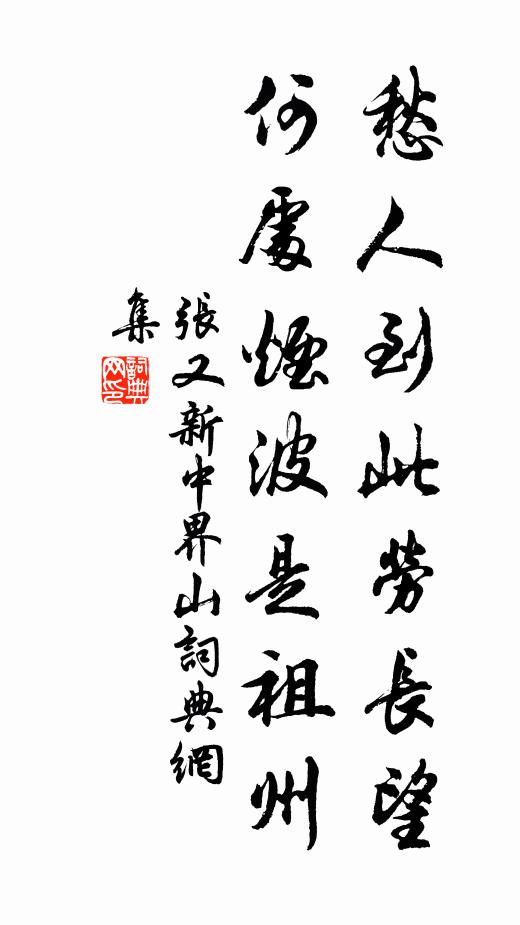 愁人到此勞長望
何處煙波是祖州
張又新中界山詞典網
集
詞典網印